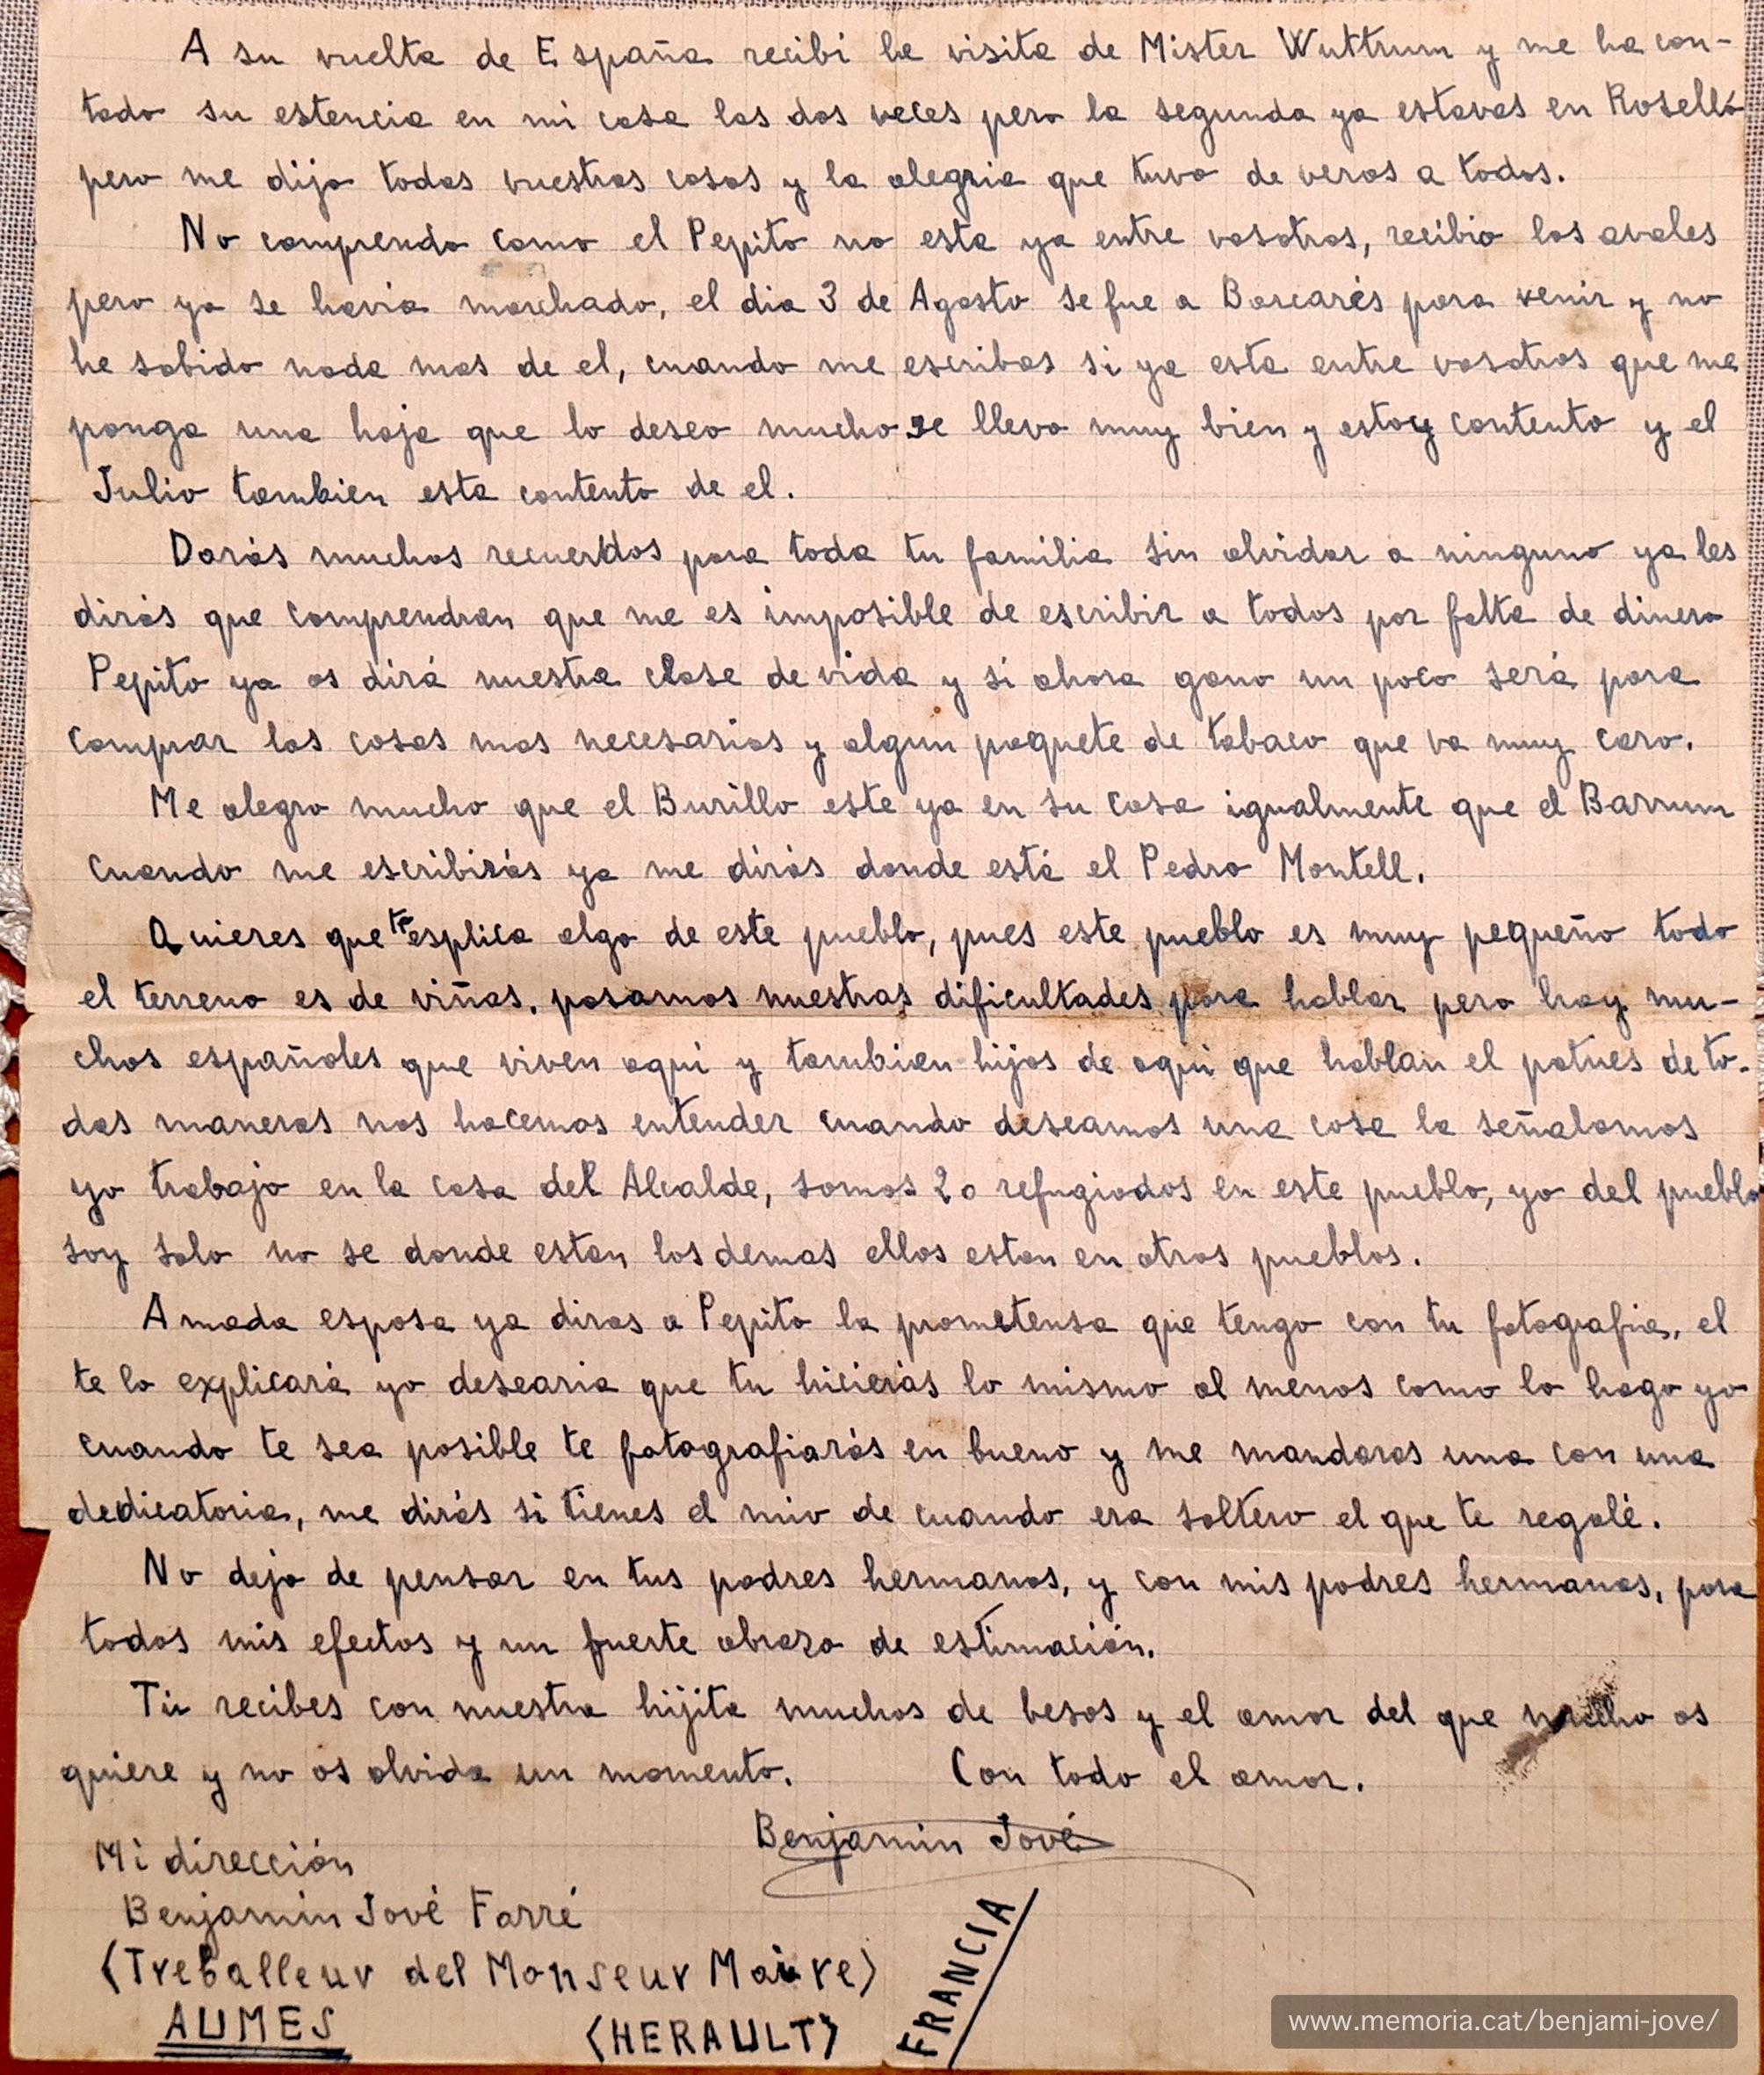 A su vuelta de España recibi he visita de Mister Wuttrum y me ha con-
tado su estencia en mi casa las dos veces pero la segunda ya estavas en Roselló
pero me dijo todas vuestras cosas y la alegria que tuvo de veros a todos.
No comprendo como el Pepito no esta ya entre vosotros, recibio los avales
pero ya se havia marchado, el dia 3 de Agosto se fue a Barcarés para venir y no
he sabido nada mas de el, cuando me escribas si ya esta entre vosotros que me
ponga una hoja que lo deseo mucho se lleva muy bien y estoy contento y el
Julio tambien esta contento de el.
Darás muchos recuerdos para toda tu familia sin olvidar a ninguno ya les
dirás que comprendran que me es imposible de escribir a todos por falta de dinero
Pepito ya os dirá nuestra clase de vida y si ahora gano un poco será para
comprar las cosas mas necesarias y algun paquete de tabaco que va muy caro.
Me alegro mucho que el Burillo este ya en su casa igualmente que el Barrum
cuando me escribirás ya me dirás donde está el Pedro Montell.
Quieres que te esplica algo de este pueblo, pues este pueblo es muy pequeño todo
el terreno es de viñas, pasamos nuestras dificultades para hablar pero hay mu-
chos españoles que viven aqui y tambien hijos de aqui que hablan el patues de to-
das maneras nos hacemos entender cuando deseamos una cosa la señalamos
yo trabajo en la casa del Alcalde, somos 20 refugiados en este pueblo, yo del pueblo
soy solo no se donde estan los demas ellos estan en otros pueblos.
Amada esposa ya diras a Pepito la prometensa que tengo con tu fotografia, el
te lo explicará yo desearia que tu hicierás lo mismo al menos como lo hago yo
cuando te sea posible te fotografiarás en bueno y me mandaras una con una
dedicatoria, me dirás si tienes el mio de cuando era soltero el que te regalé.
No dejo de pensar en tus padres hermanos, y con mis padres hermanas, para
todos mis efectos y un fuerte abrazo de estimación.
Tú recibes con nuestra hijita muchos de besos y el amor del que mucho os
quiere y no os olvida un momento. Con todo el amor.
Benjamin Jové
Mi dirección
Benjamin Jové Farré
(Treballeur del Monseur Maire)
AUMES (HERAULT) FRANCIA
www.memoria.cat/benjami-jove/